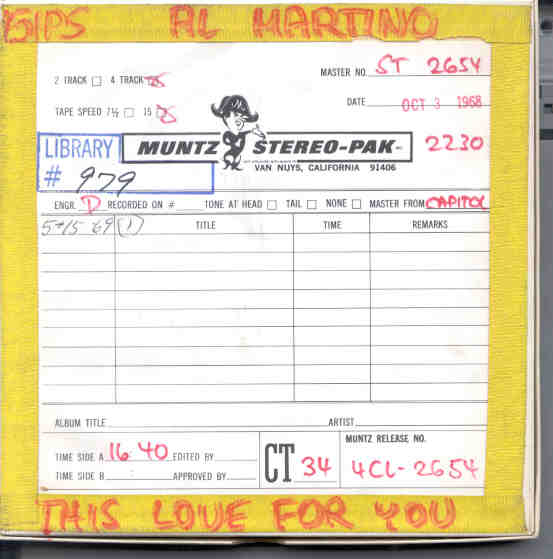 15IPS AL MARTINO
2 TRACK 4 TRACK
MASTER NO. ST 2654
TAPE SPEED 7½ 15
DATE OCT 3 1968
LIBRARY
# 979
MUNTZ STEREO-PAK INC.
2230
VAN NUYS, CALIFORNIA 91406
ENGR. D RECORDED ON # TONE AT HEAD TAIL NONE MASTER FROM CAPITOL
5-15 69 (1) TITLE TIME REMARKS
ALBUM TITLE ARTIST
TIME SIDE A 16:40 EDITED BY
TIME SIDE B : APPROVED BY
CT 34
MUNTZ RELEASE NO.
4CL-2654
THIS LOVE FOR YOU